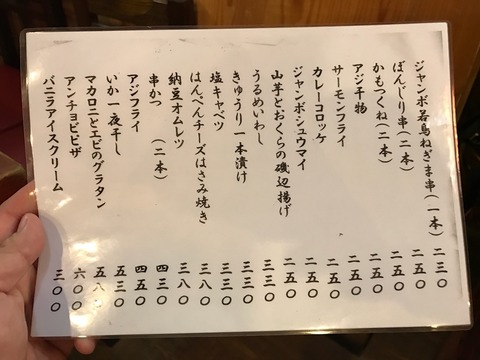 ジャンボ若鳥ねぎま串(一本) 二三〇
ぼんじり串(二本) 二五〇
かもつくね(二本) 二五〇
アジ干物 二五〇
サーモンフライ 二五〇
カレーコロッケ 二五〇
ジャンボシュウマイ 二五〇
山芋とおくらの磯辺揚げ 二五〇
うるめいわし 三三〇
きゅうり一本漬け 三三〇
塩キャベツ 三三〇
はんぺんチーズはさみ焼き 三八〇
納豆オムレツ 三八〇
串かつ(二本) 四三〇
アジフライ 四五〇
いか一夜干し 五三〇
マカロニとエビのグラタン 五八〇
アンチョビピザ 六〇〇
バニラアイスクリーム 三〇〇